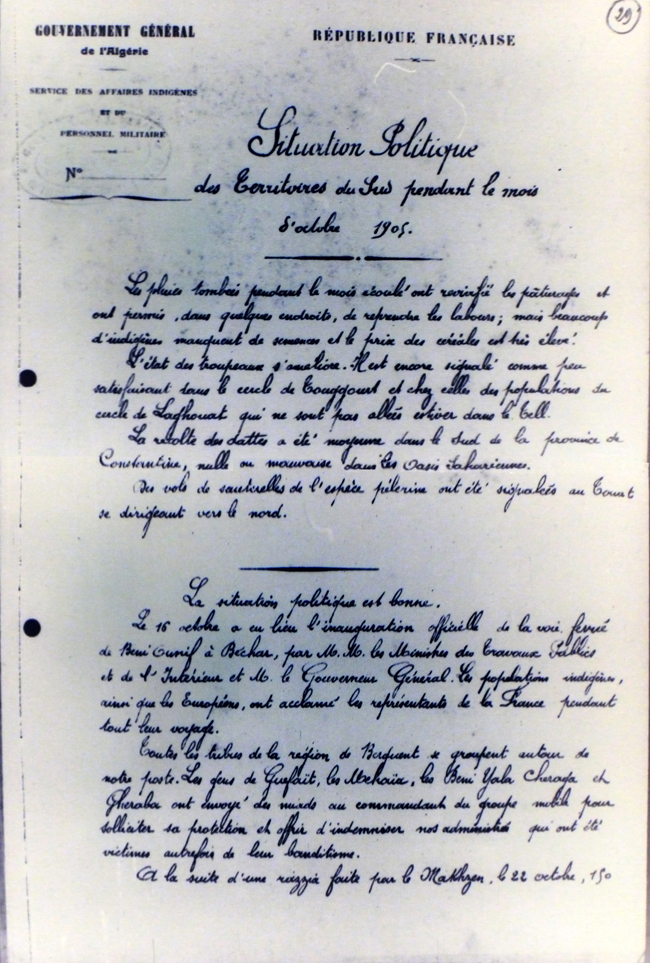 29
GOUVERNEMENT GÉNÉRAL
de l'Algérie
RÉPUBLIQUE FRANÇAISE
SERVICE DES AFFAIRES INDIGÈNES
ET DU
PERSONNEL MILITAIRE
N°
Situation Politique
des Territoires du Sud pendant le mois
d'octobre 1905.
Les pluies tombées pendant le mois écoulé ont revivifié les pâturages et
ont permis, dans quelques endroits, de reprendre les labours; mais beaucoup
d'indigènes manquent de semences et le prix des céréales est très élevé.
L'état des troupeaux s'améliore. Il est encore signalé comme peu
satisfaisant dans le cercle de Touggourt et chez celles des populations du
cercle de Laghouat qui ne sont pas allées estiver dans le Tell.
La récolte des dattes a été moyenne dans le Sud de la province de
Constantine, nulle ou mauvaise dans les Oasis Sahariennes.
Des vols de sauterelles de l'espèce pélerine ont été signalées au Touat
se dirigeant vers le nord.
La situation politique est bonne.
Le 16 octobre a eu lieu l'inauguration officielle de la voie ferrée
de Beni Ounif à Béchar, par M.M. les Ministres des Travaux Publics
et de l'Intérieur et M. le Gouverneur Général. Les populations indigènes,
ainsi que les Européens, ont acclamé les représentants de la France pendant
tout leur voyage.
Toutes les tribus de la région de Berguent se groupent autour de
notre poste. Les gens de Guefaït, les Mehaïa, les Beni Yala Cheraga et
Gheraba ont envoyé des miads au commandant du groupe mobile pour
solliciter sa protection et offrir d'indemniser nos administrés qui ont été
victimes autrefois de leur banditisme.
A la suite d'une razzia faite par le Makhzen, le 22 octobre, 150